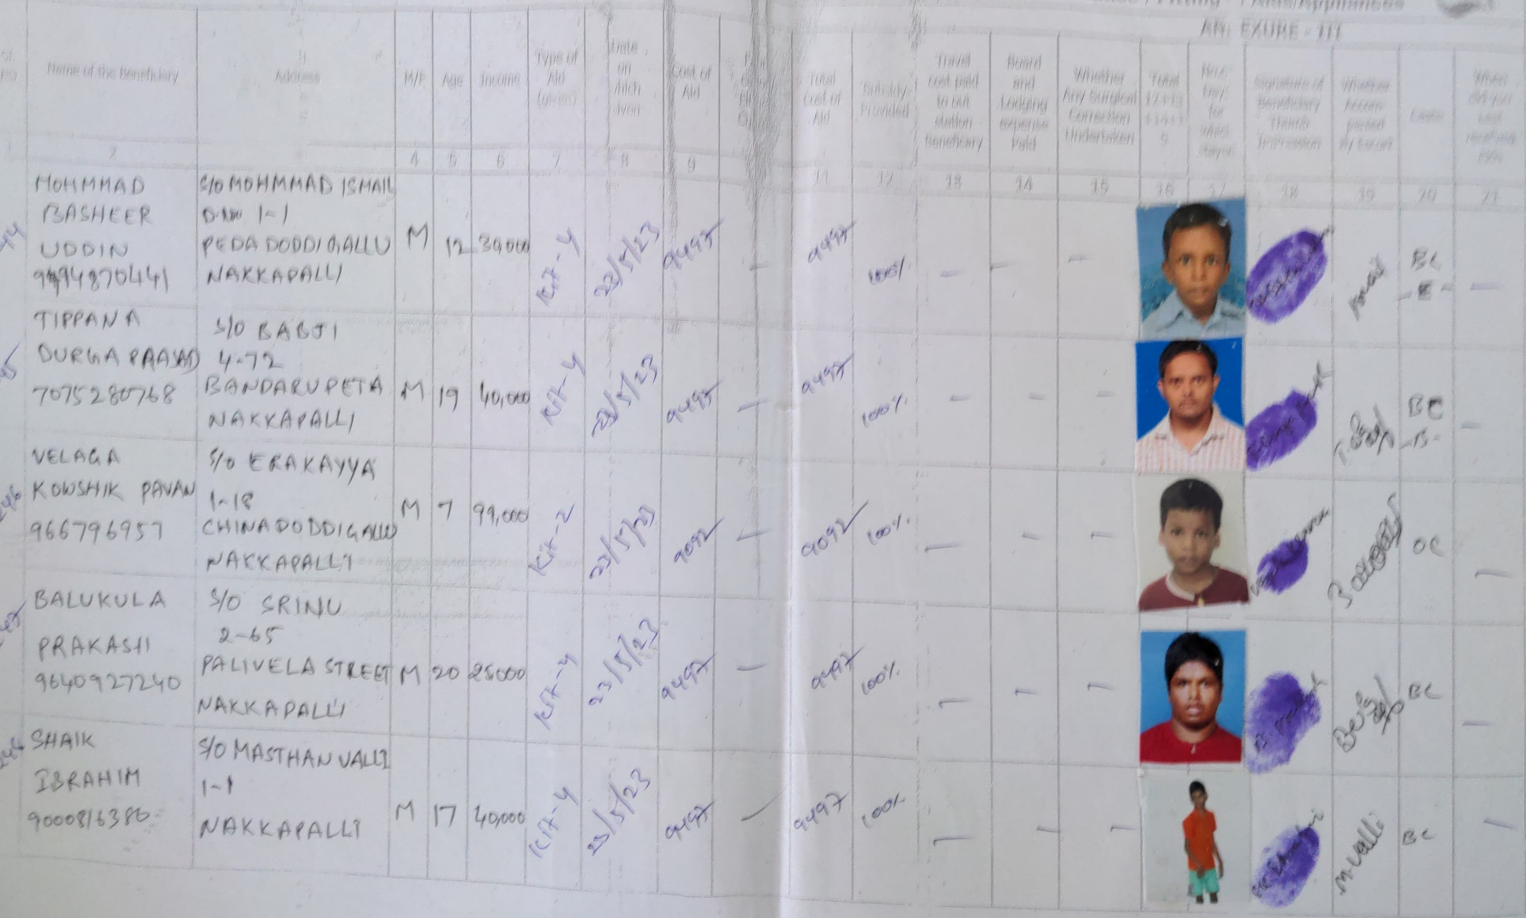 ANNEXURE - III
Name of the Beneficiary
Address
M/F
Age
Income
Type of Aid (given)
Date on which given
Cost of Aid
Total Cost of Aid
Subsidy Provided
Travel cost paid to out station Beneficiary
Board and Lodging expense Paid
Whether Any Surgical Correction Undertaken
2 4 5 6 7 8 9 11 12 13 14 15 16 17 18 19 20 21
MOHMMAD
BASHEER
UDDIN
S/O MOHMMAD ISMAIL
1-1
PEDADODDIGALLU
NAKKAPALLI
M 12 30,000 Kit-4 23/5/23 9497 - 9497 100% - - - BC
-E- -
TIPPANA
DURGA PRASAD
7075280768
S/O BABJI
4-72
BANDARUPETA
NAKKAPALLI
M 19 40,000 Kit-4 23/5/23 9497 - 9497 100% - - - BC
-B- -
246
VELAGA
KOWSHIK PAVAN
966796957
S/O ERAKAYYA
1-18
CHINADODDIGALLU
NAKKAPALLI
M 7 99,000 Kit-2 23/5/23 9092 - 9092 100% - - - OC -
BALUKULA
PRAKASH
9640927240
S/O SRINU
2-65
PALIVELA STREET
NAKKAPALLI
M 20 25000 Kit-4 23/5/23 9497 - 9497 100% - - - BC -
SHAIK
IBRAHIM
9000816386
S/O MASTHAN VALLI
1-1
NAKKAPALLI
M 17 40,000 Kit-4 23/5/23 9497 - 9497 100% - - - M.Valli BC -